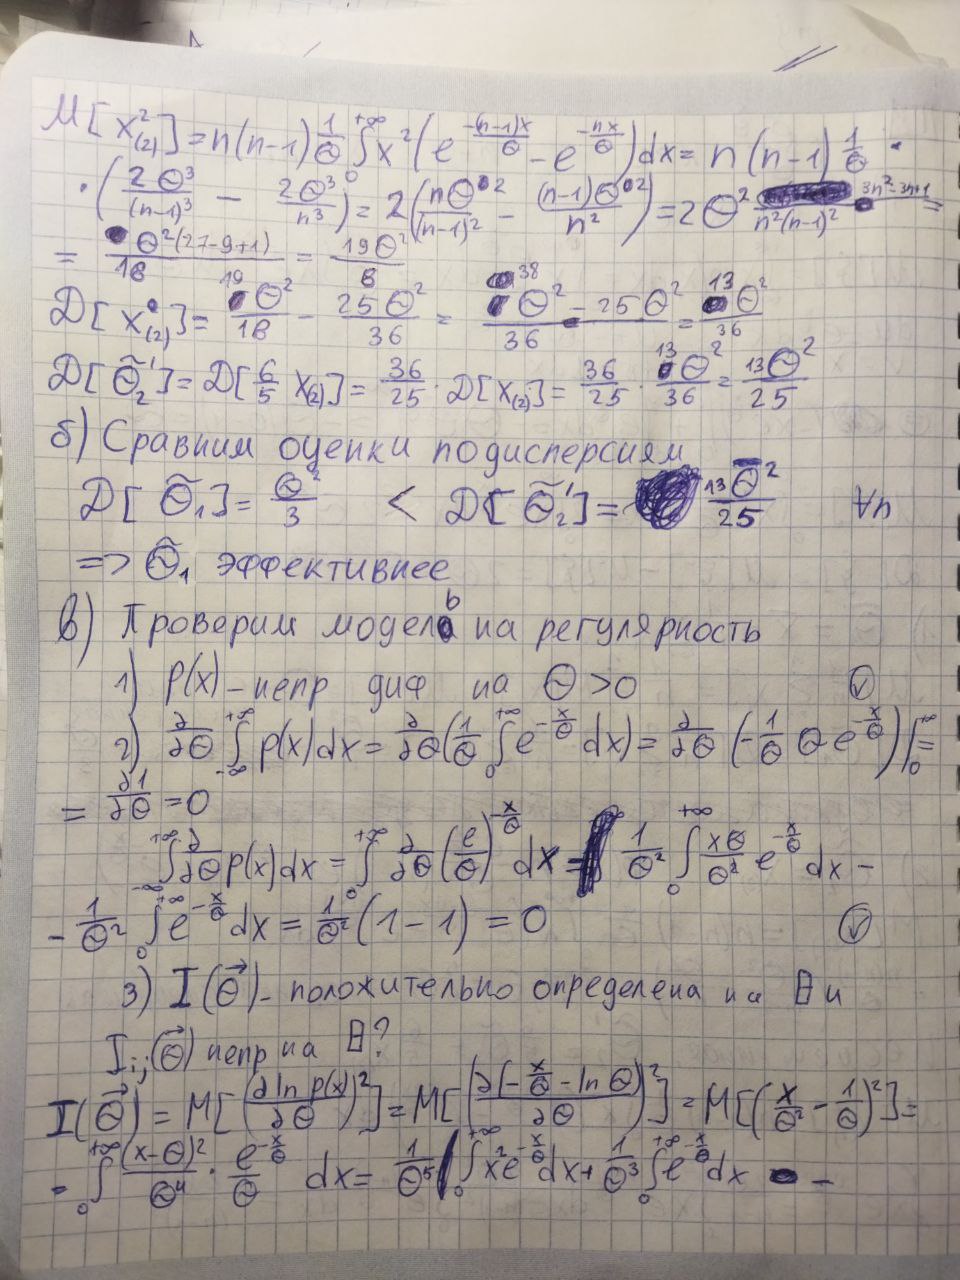 M[X²₍₂₎] = n(n-1) 1/Θ ∫₀^{+∞} x² (e^{-(n-1)x/Θ} - e^{-nx/Θ}) dx = n(n-1) 1/Θ ·
· (2Θ³/(n-1)³ - 2Θ³/n³) = 2(nΘ²/(n-1)² - (n-1)Θ²/n²) = 2Θ² (3n²-3n+1)/(n²(n-1)²) =
= Θ²(27-9+1)/18 = 19Θ²/18
Д[X₍₂₎] = 19Θ²/18 - 25Θ²/36 = (38Θ² - 25Θ²)/36 = 13Θ²/36
Д[Θ̃₂'] = Д[6/5 X₍₂₎] = 36/25 · Д[X₍₂₎] = 36/25 · 13Θ²/36 = 13Θ²/25
б) Сравним оценки по дисперсиям
Д[Θ̃₁] = Θ²/3 < Д[Θ̃₂'] = 13Θ²/25
=> Θ̃₁ эффективнее
в) Проверим модель на регулярность
1) p(x) - непр диф на Θ > 0 ✓
2) ∂/∂Θ ∫_{-∞}^{+∞} p(x)dx = ∂/∂Θ (1/Θ ∫₀^{+∞} e^{-x/Θ} dx) = ∂/∂Θ (-1/Θ Θ e^{-x/Θ}) |₀^{+∞} =
= ∂1/∂Θ = 0
∫_{-∞}^{+∞} ∂/∂Θ p(x)dx = ∫₀^{+∞} ∂/∂Θ (e/Θ)^{-x/Θ} dx = 1/Θ² ∫₀^{+∞} xΘ/Θ² e^{-x/Θ} dx -
- 1/Θ² ∫₀^{+∞} e^{-x/Θ} dx = 1/Θ² (1-1) = 0 ✓
3) I(Θ⃗) - положительно определена на Θ и
I_{ij}(Θ⃗) непр на Θ?
I(Θ⃗) = M[(∂ln p(x)/∂Θ)²] = M[(∂(-x/Θ - lnΘ)/∂Θ)²] = M[(x/Θ² - 1/Θ)²] =
= ∫₀^{+∞} (x-Θ)²/Θ⁴ · e^{-x/Θ}/Θ dx = 1/Θ⁵ ∫₀^{+∞} x² e^{-x/Θ} dx + 1/Θ³ ∫₀^{+∞} e^{-x/Θ} dx -